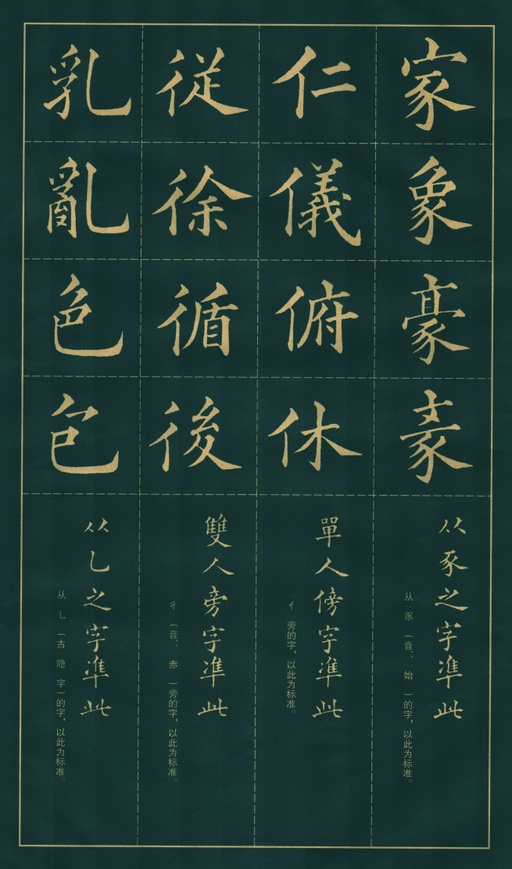 家象豪
从豕之字準此
从豕（音、始）的字，以此为标准。
仁儀俯休
單人傍字準此
亻旁的字，以此为标准。
従徐循後
雙人旁字準此
彳（音、赤）旁的字，以此为标准。
乳亂色
从乚之字準此
从乚（古隐字）的字，以此为标准。